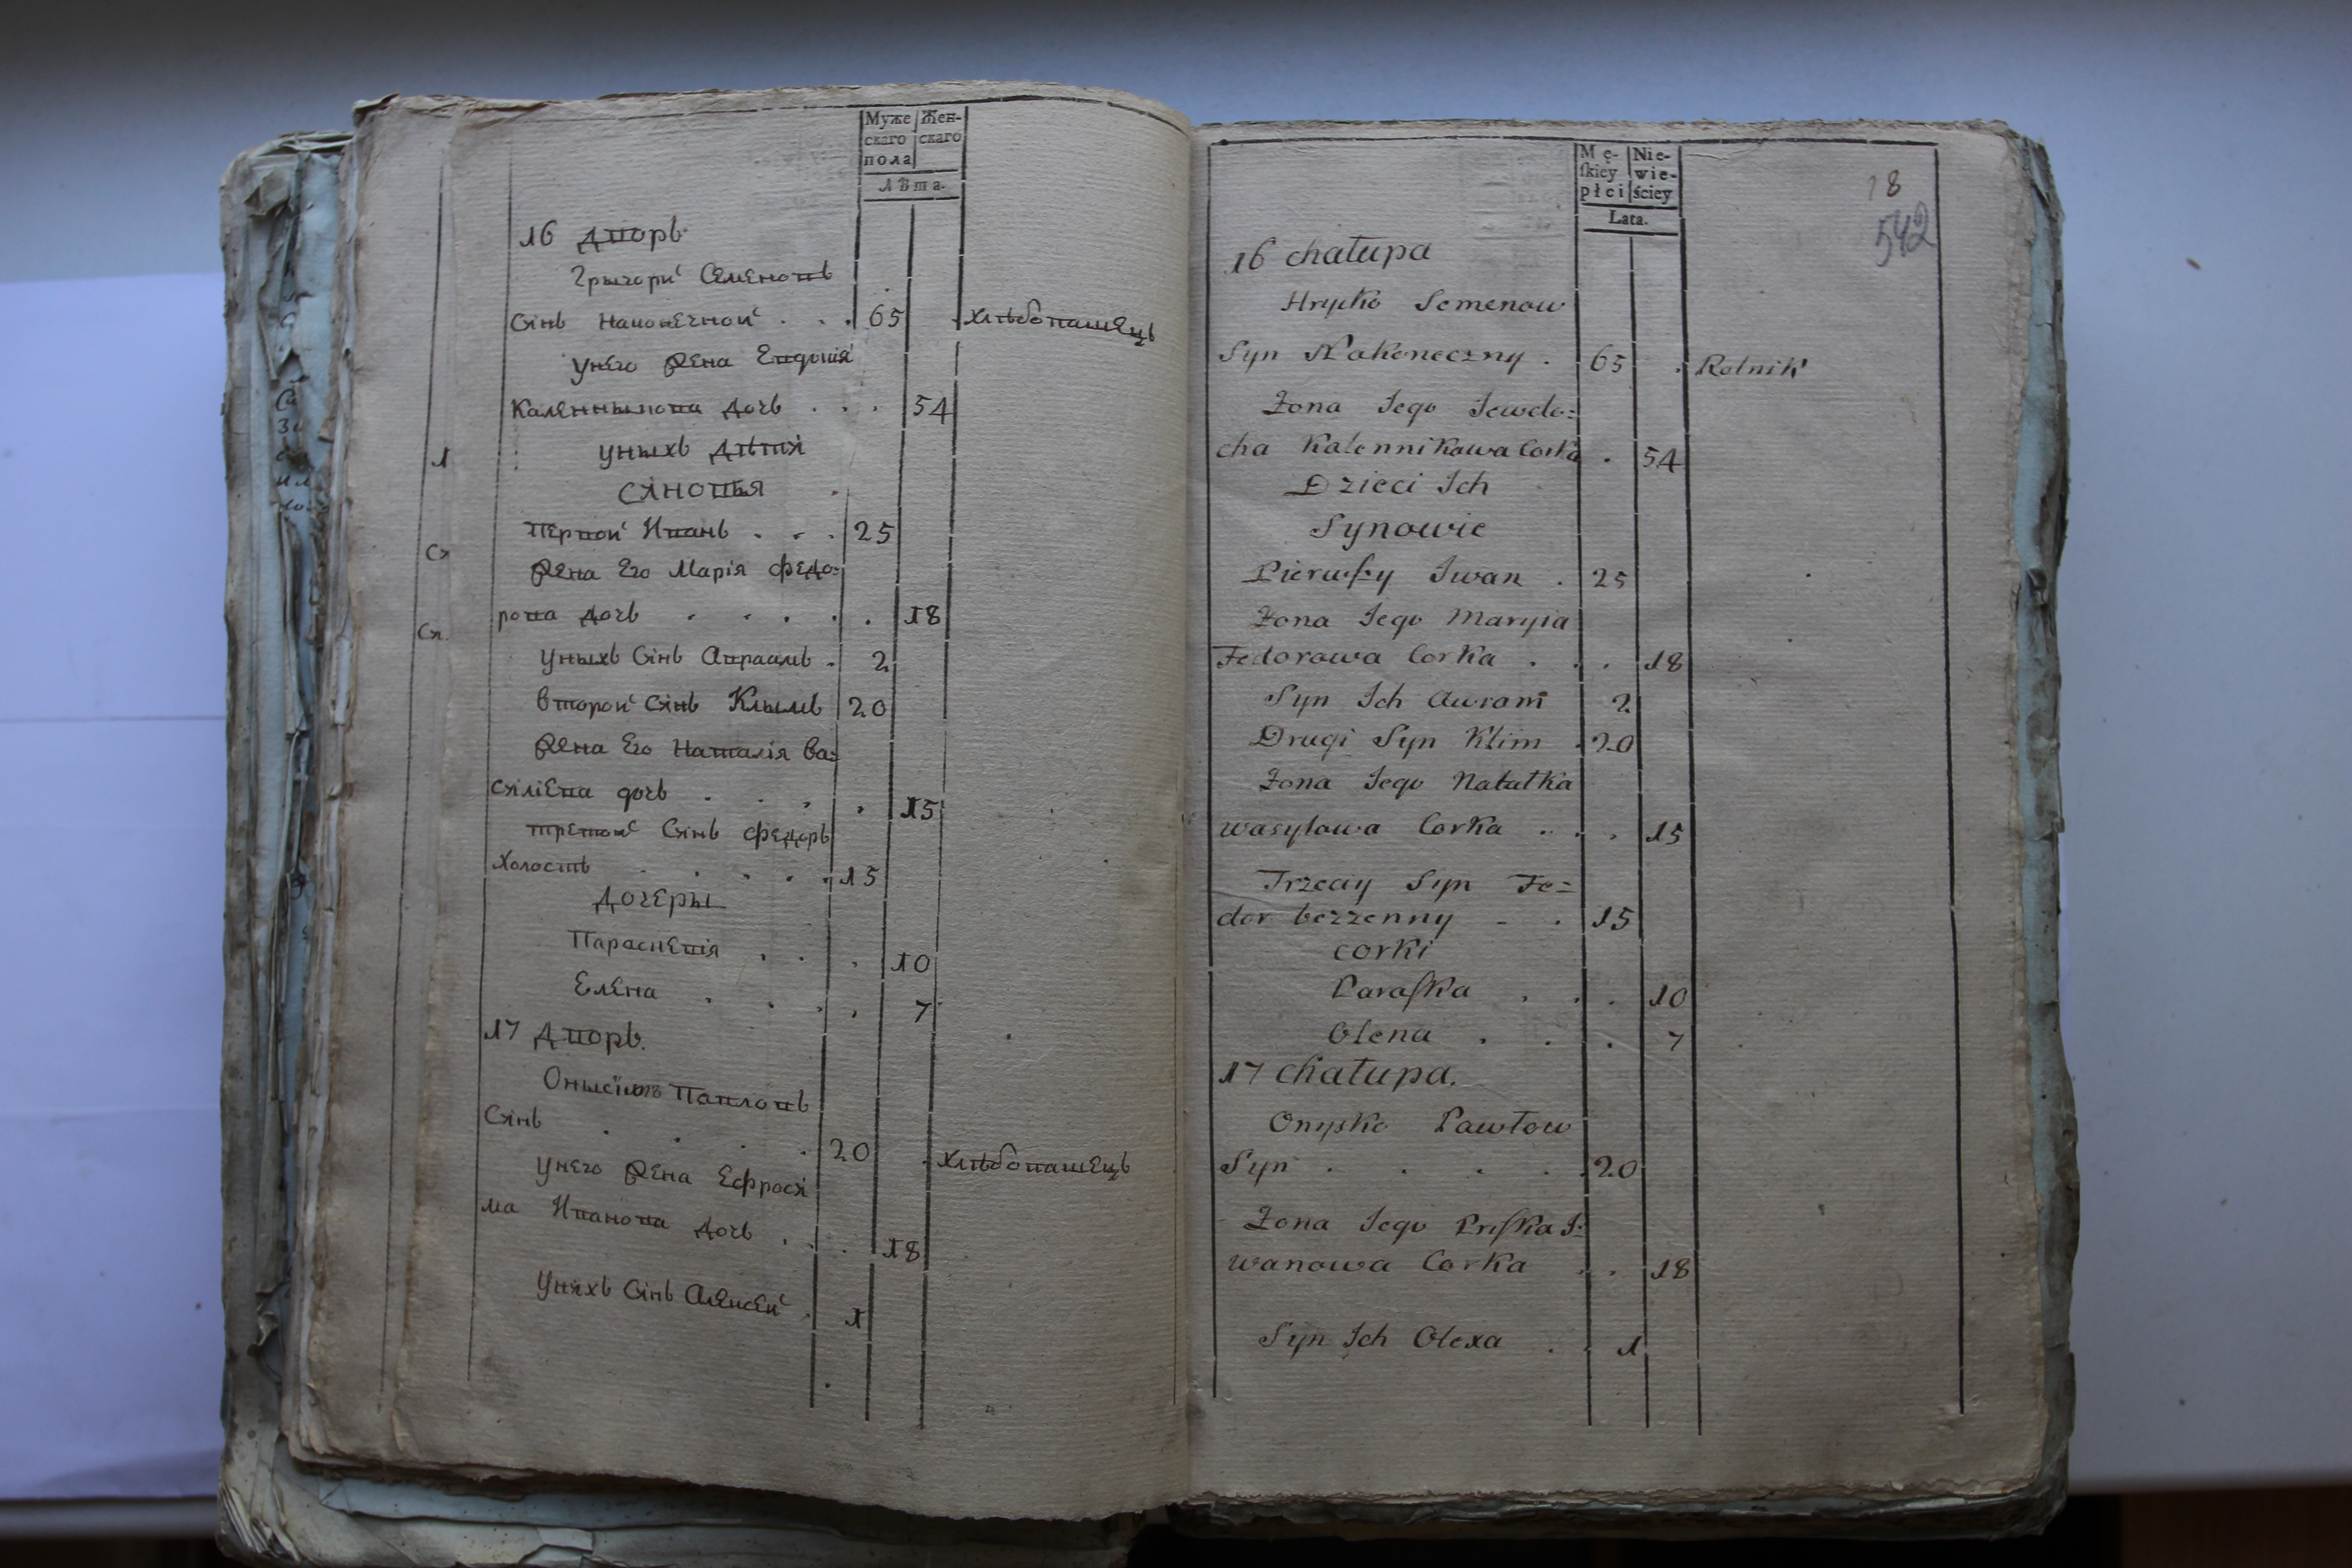 Муже Жен-
скаго скаго
пола
Лѣта.
16 Дворъ
Грыгори Семеновъ
Сынъ Наконечной . . . 65 . хлѣбопашецъ
унего Жена Евдокия
Каленныкова дочь . . . 54
уныхъ Дѣтия
Сяновья
первои Иванъ . . . 25
Жена Его Марія Федо=
рова дочь . . . . . 18
уныхъ Сінъ Авраамъ . 2
второи Сінъ Клымъ 20
Жена Его Наталія Ва=
сяліева дочь . . . . 15
третои Сінъ Федоръ
Холостъ . . . . . 15
Дочеры
Параскевія . . . 10
Елена . . . . 7
17 Дворъ.
Онысімъ Павловъ
Сянъ . . . 20 . хлѣбопашецъ
унего Жена Ефрося
ма Иванова дочь . . . 18
Уняхъ Сінъ Алексеи . 1
1
Ся
Ся.
18
542
Mę- Nie-
ſkiey wie-
płci ściey
Lata.
16 chałupa
Hrycko Semenow
Syn Nakoneczny . 65 . Rolnik
Zona Jego Jewdo=
cha Kalennikowa Corka . 54
Dzieci Ich
Synowie
Pierwſzy Iwan . 25
Zona Jego Maryia
Fedorowa Corka . . . 18
Syn Ich Awram 2
Drugi Syn Klim . 20
Zona Jego Natałka
wasylowa Corka . . . 15
Trzeciy Syn Fe=
dor bezzenny - . 15
corki
Paraſka . . . 10
Olena . . . 7
17 chałupa.
Onysko Pawłow
Syn . . . . . 20
Zona Jego PriſKa I=
wanowa Corka . . 18
Syn Ich Olexa . . 1